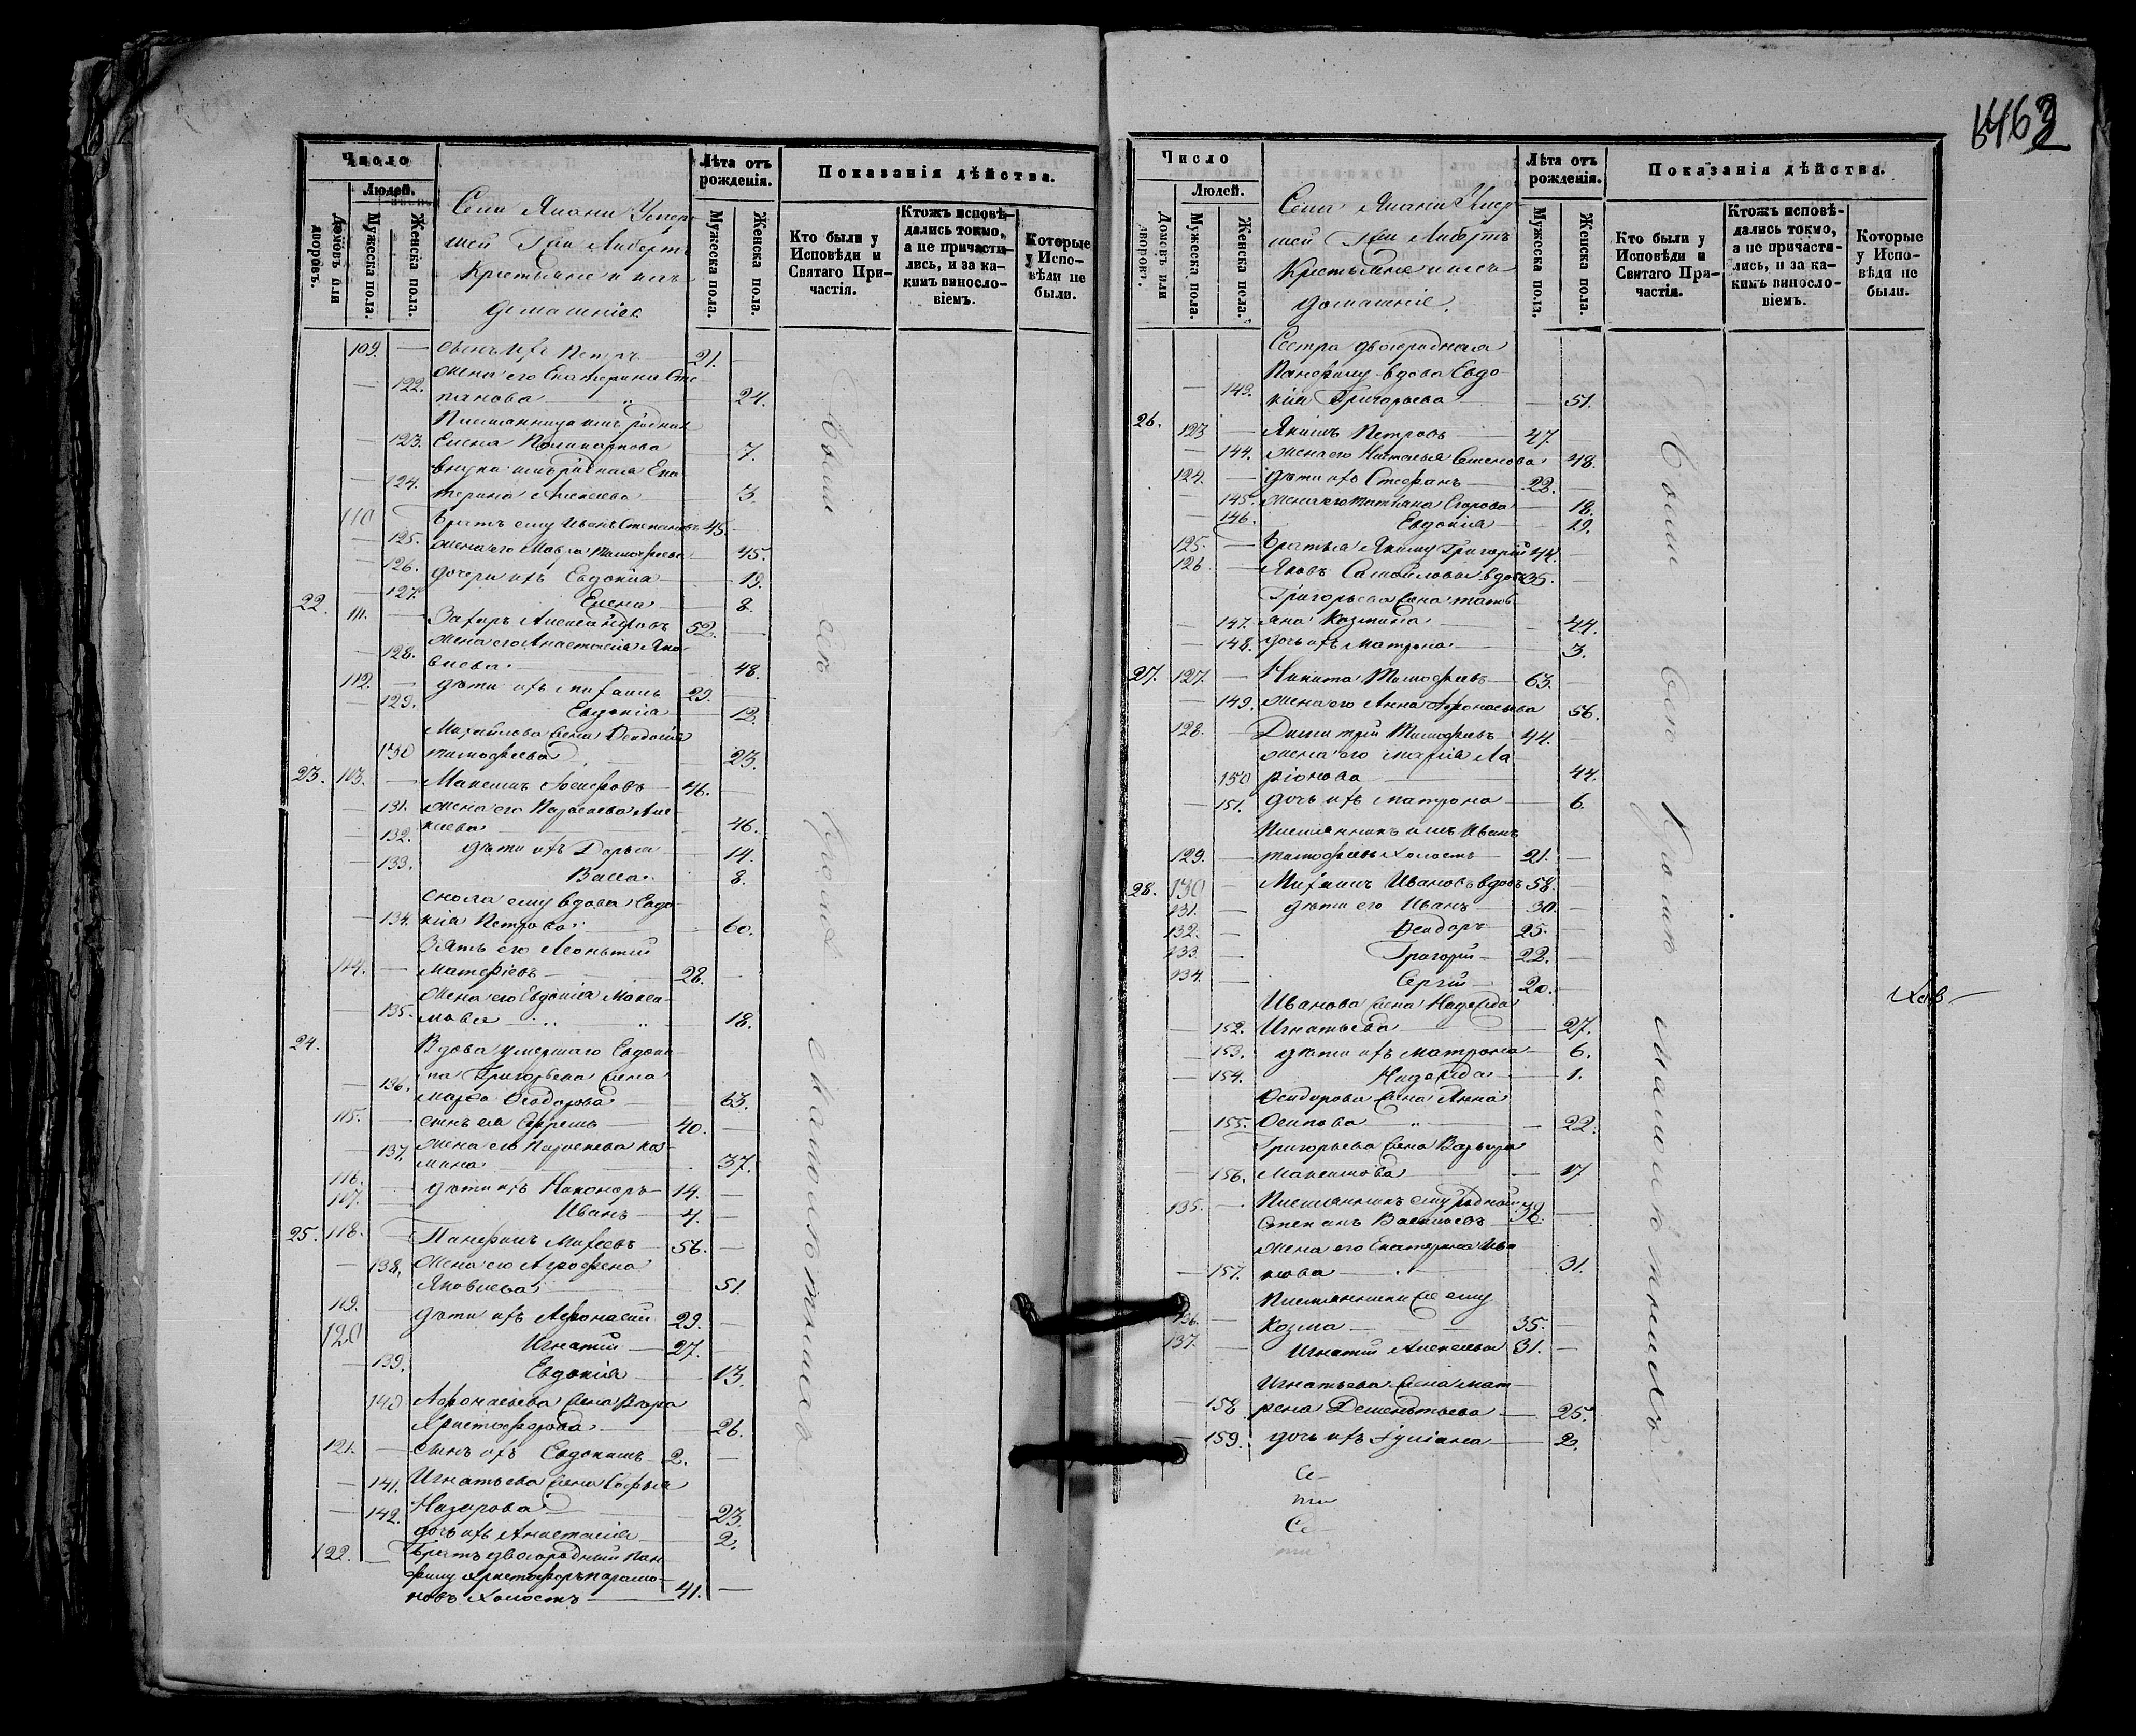 463
Число
Людей.
Домовъ или дворовъ.
Мужеска пола.
Женска пола.
Лѣта отъ рожденія.
Мужеска пола.
Женска пола.
Показанія дѣйства.
Кто были у Исповѣди и Святаго Причастія.
Ктожъ исповѣдались токмо, а не причастились, и за какимъ винословіемъ.
Которые у Исповѣди не были.
Крестьяне и ихъ
домашніе
109. — сынъ ихъ Петръ 21. —
жена его Екатерина Сте-
— 122. панова — 24.
Племянница имъ родная
— 123. Елена Поликарпова — 7.
внука имъ родная Ека-
— 124. терина Алексеева — 3.
110 — Братъ ему Иванъ Степановъ 45. —
— 125. жена его Мавра Тимофеева — 45.
— 126. дочери ихъ Евдокія — 19.
— 127. Елена — 8.
22. 111. — Захаръ Александровъ 52. —
жена его Анастасія Яко-
— 128. влева — 48.
112. — дѣти ихъ Михаилъ 29. —
— 129. Евдокія — 12.
Михайлова жена Феодосія
130 Тимофеева — 23.
23. 113. — Максимъ 46. —
— 131. жена его Параскева Але-
ксеева — 46.
— 132. дѣти ихъ Дарья — 14.
— 133. Васса — 8.
ему вдова Евдо-
— 134. кія Петрова — 60.
Зять его Леонтій
114. — 28. —
Жена его Евдокія Макси-
— 135. мова — 18.
24. Вдова умершаго Евдоки-
ма Григорьева жена
— 136. Марѳа Феодорова — 63.
115. — сынъ ея Ефремъ 40. —
— 137. жена его Параскева Коз-
мина — 37.
116. — дѣти ихъ Никоноръ 14. —
117. — Иванъ 4. —
25. 118. — Панфилъ Михеевъ 56. —
— 138. Жена его Агрофена
Яковлева — 51.
119. — дѣти ихъ Афонасій 29. —
120 Игнатій 27. —
— 139. Евдокія — 13.
140 Афонасьева жена
Христофорова — 26.
121. — сынъ ихъ Евдокимъ 2. —
— 141. Игнатьева жена Софья
Назарова — 23.
— 142. дочь ихъ Анастасія — 2.
122. — Братъ двоюродный Пан-
филу Христофоръ Парамо-
новъ холостъ 41. —
Число
Людей.
Домовъ или дворовъ.
Мужеска пола.
Женска пола.
Лѣта отъ рожденія.
Мужеска пола.
Женска пола.
Показанія дѣйства.
Кто были у Исповѣди и Святаго Причастія.
Ктожъ исповѣдались токмо, а не причастились, и за какимъ винословіемъ.
Которые у Исповѣди не были.
Крестьяне и ихъ
домашніе.
Сестра двоюродная
Панфилу вдова Евдо-
— 143. кія Григорьева — 51.
26. 123 — Якимъ Петровъ 47. —
— 144. жена его Наталья Семенова 48.
124. — дѣти ихъ Стефанъ 22. —
— 145. жена его Татіана Егорова — 18.
— 146. Евдокія — 19.
125. — Братья Якиму Григорій 44. —
126 — Яковъ Самойловы вдовъ 35. —
Григорьева жена Тать-
— 147. яна Козмина — 44.
— 148. дочь ихъ Матрона — 3.
27. 127. — Никита Тимофеевъ 63. —
— 149. жена его Анна Афонасьева 56.
128. — Димитрій Тимофеевъ 44. —
жена его Марія Ла-
150 ріонова — 44.
— 151. дочь ихъ Матрона — 6.
Племянникъ имъ Иванъ
129. — Тимофеевъ холостъ 21. —
28. 130 — Михаилъ Ивановъ вдовъ 58. —
131. — дѣти его Иванъ 30. —
132. — Феодоръ 25. —
133 — Григорій 22. —
134. — Сергій 20. —
Иванова жена Надежда
— 152. Игнатьева — 27.
— 153. дѣти ихъ Матрона — 6.
— 154. Надежда — 1.
Феодорова жена Анна
— 155. Осипова — 22.
Григорьева жена Варвара
— 156. Максимова — 17
135. — Племянникъ ему родной
Степанъ Васильевъ 32. —
жена его Екатерина Ива-
— 157. нова — 31.
Племянники же ему
136. — Козма 35. —
137. — Игнатій Алексеевы 31. —
Игнатьева жена Мат-
— 158 рена Дементьева — 25.
— 159. дочь ихъ Іуліана — 2.